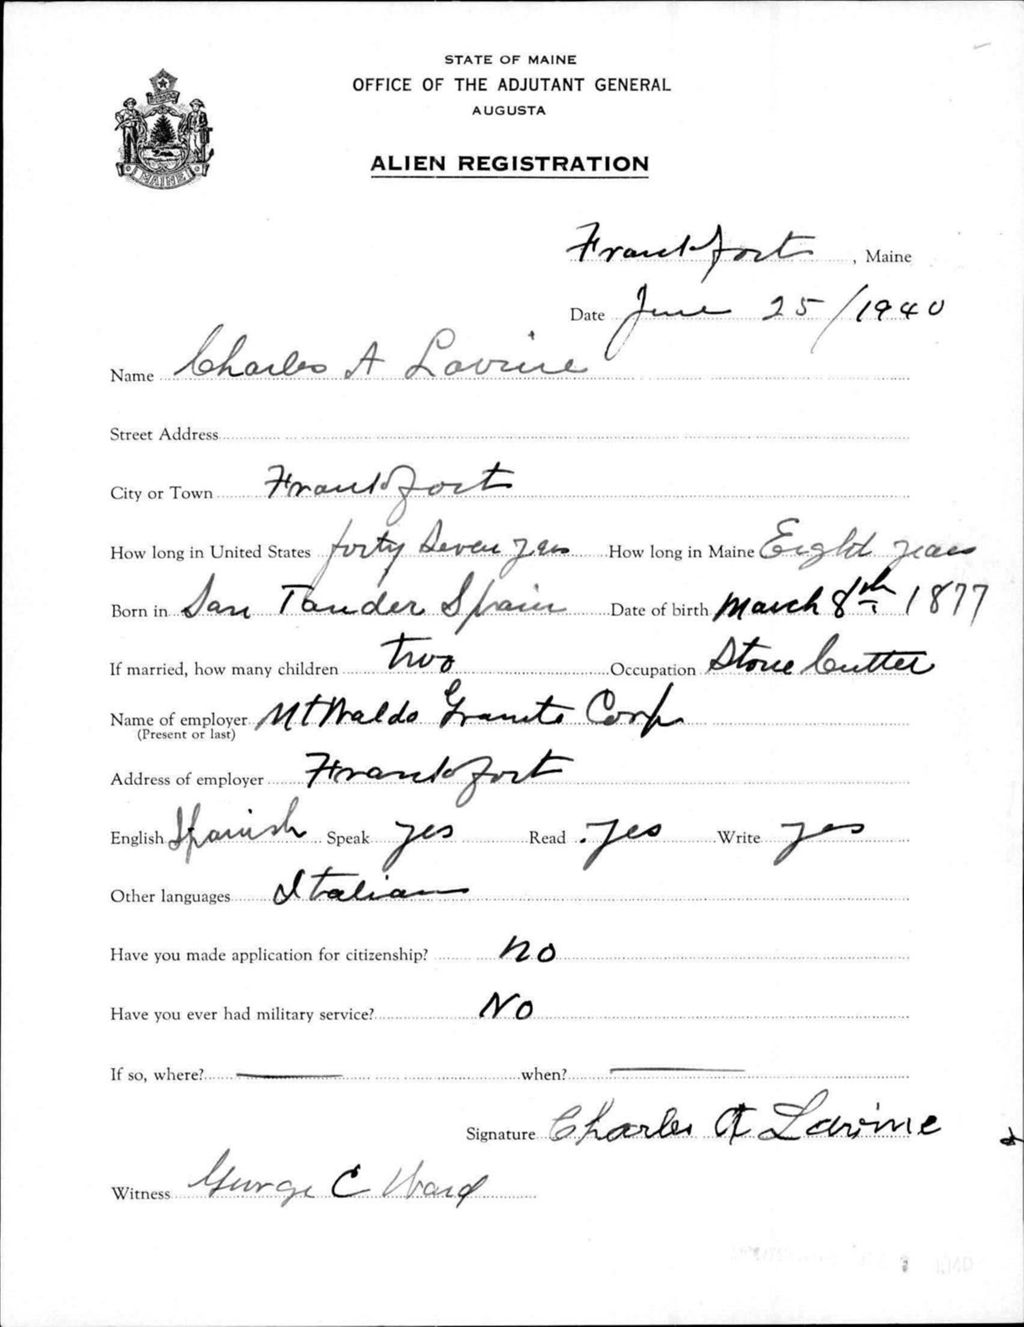 STATE OF MAINE
OFFICE OF THE ADJUTANT GENERAL
AUGUSTA
MAINE
ALIEN REGISTRATION
Frankfort, Maine
Date June 25/1940
Name Charles A Lavine
Street Address
City or Town Frankfort
How long in United States forty Seven yrs How long in Maine Eight years
Born in San Tander Spain Date of birth March 8th 1877
If married, how many children two Occupation Stone Cutter
Name of employer Mt Waldo Granite Corp
(Present or last)
Address of employer Frankfort
English Spanish Speak yes Read yes Write yes
Other languages Italian
Have you made application for citizenship? no
Have you ever had military service? No
If so, where? when?
Signature Charles A Lavine
Witness George C Ward